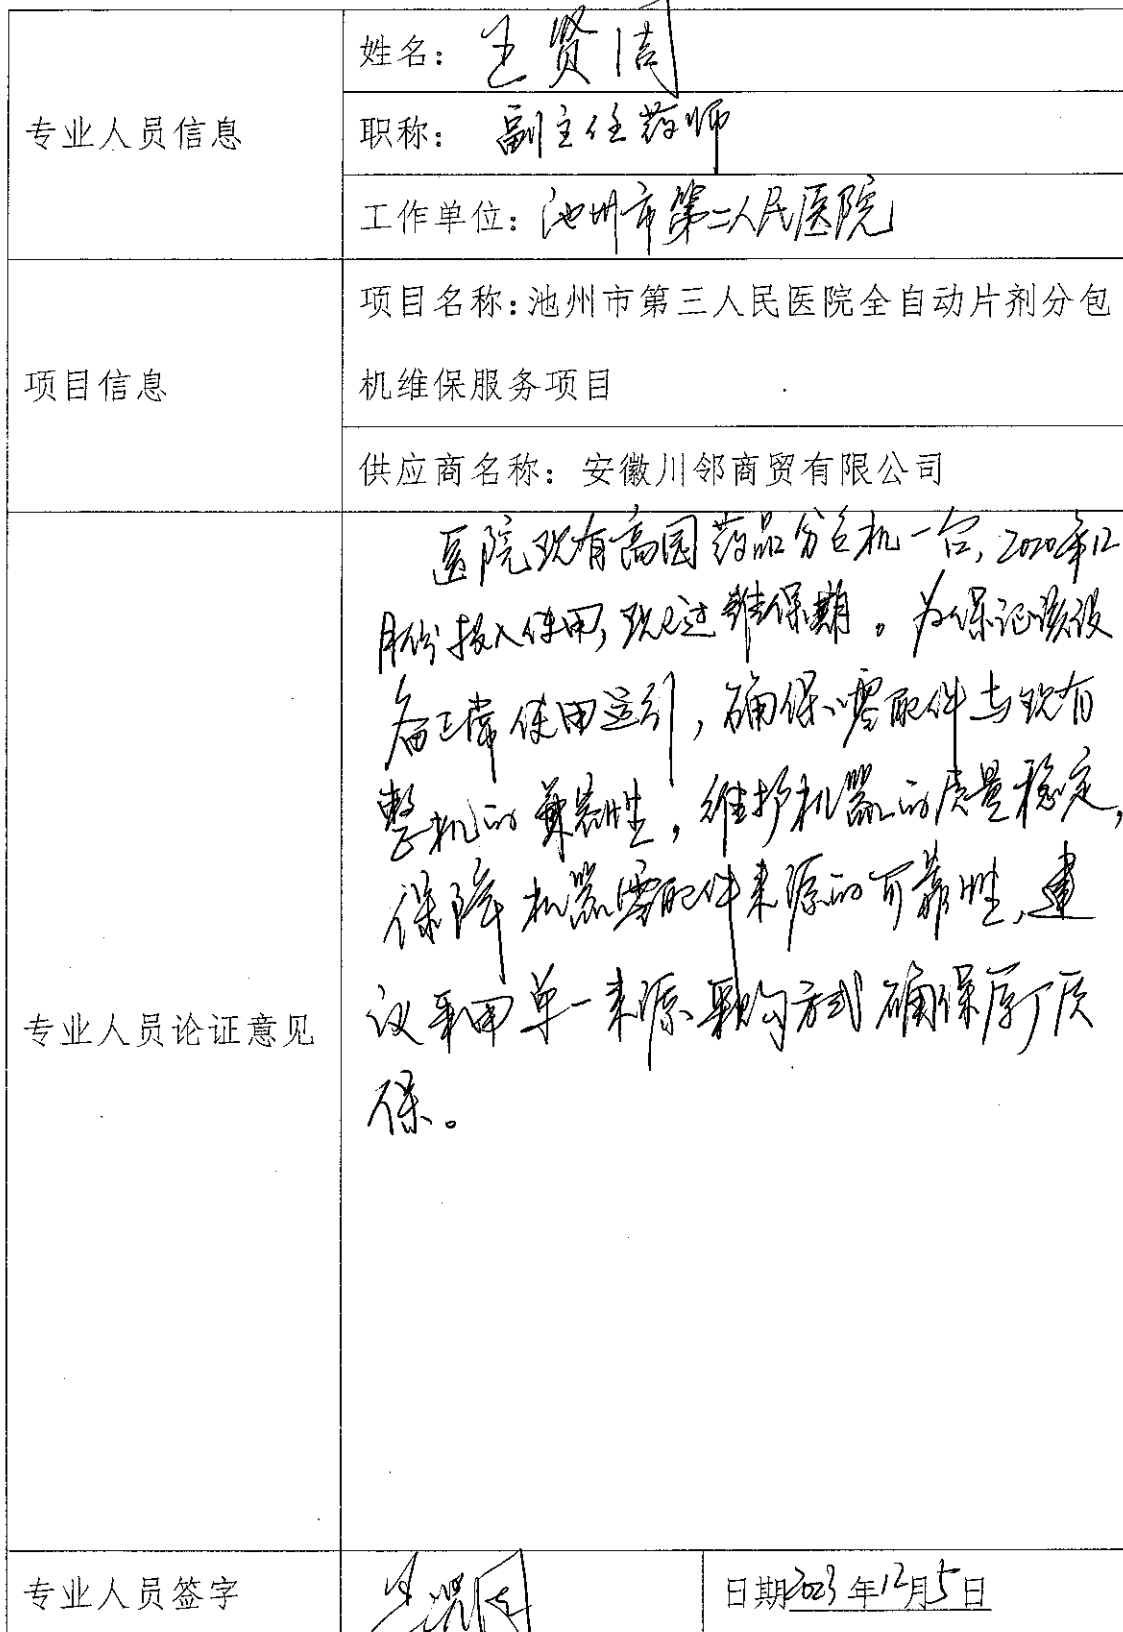 专业人员信息
姓名：王贤周
职称：副主任药师
工作单位：池州市第二人民医院
项目信息
项目名称：池州市第三人民医院全自动片剂分包
机维保服务项目
供应商名称：安徽川邻商贸有限公司
专业人员论证意见
医院现有高园药品分包机一台，2020年12
月份投入使用，现已过维保期。为保证该设
备正常使用运行，确保零配件与现有
整机的兼容性，维护机器的质量稳定，
保障机器零配件来源的可靠性，建
议采用单一来源采购方式确保原厂质
保。
专业人员签字
日期2023年12月5日